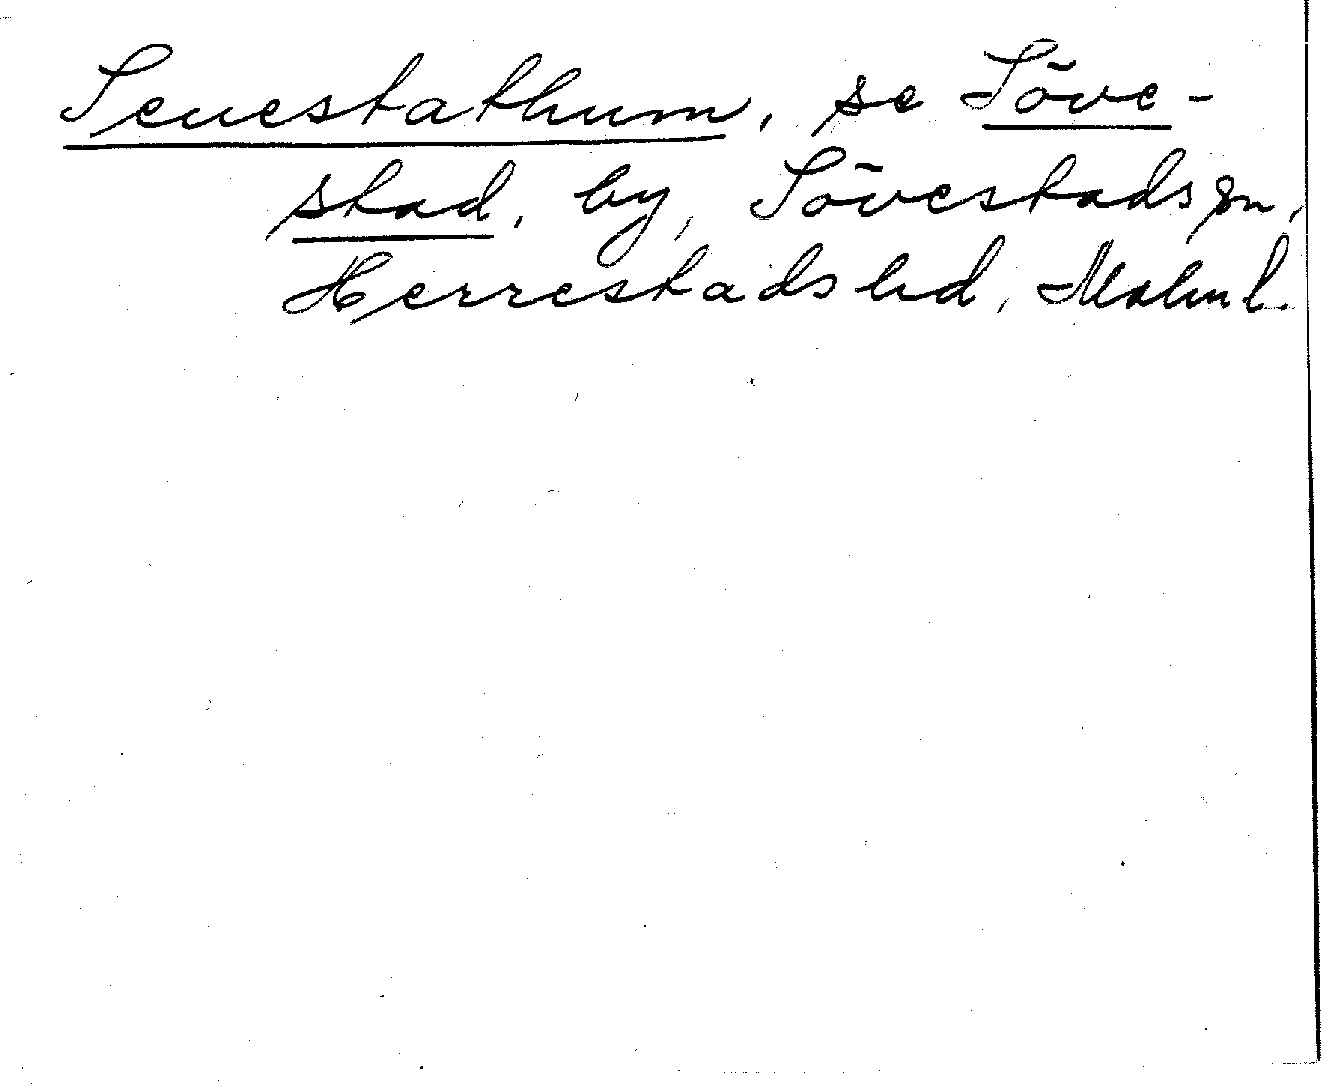 Seuestathum, se Söve-
stad, by, Sövestads sn,
Herrestads hd, Malm l.